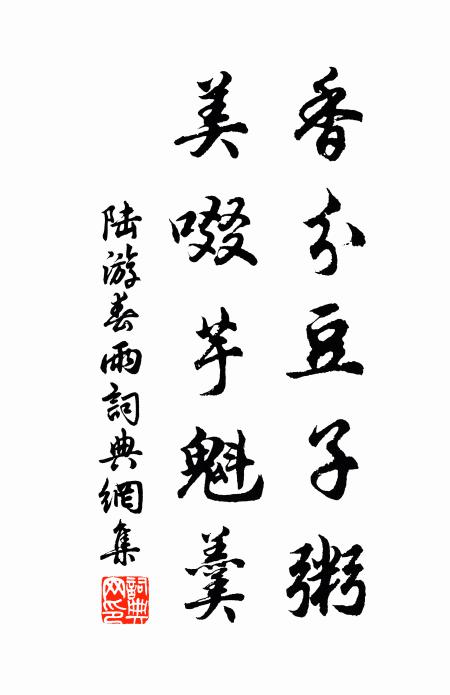 香分豆子粥
美啜芋魁羹
陆游春雨詞典網集
詞典网印